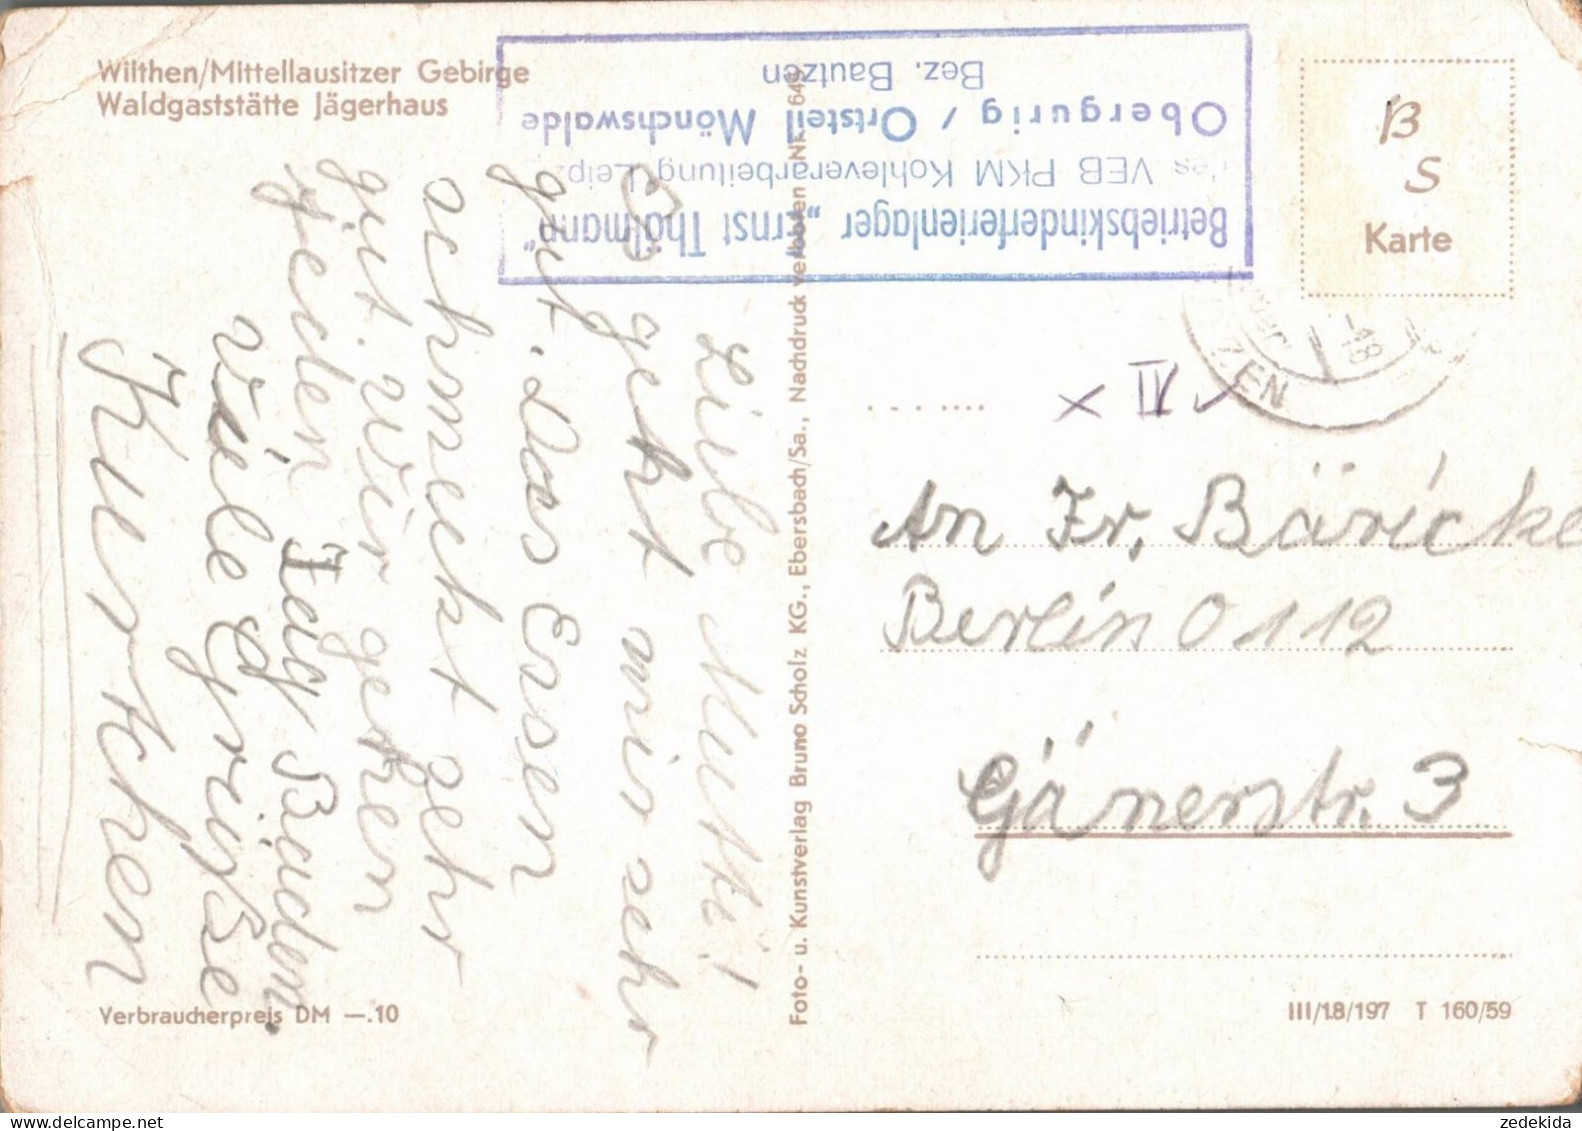 Wilthen/Mittellausitzer Gebirge
Waldgaststätte Jägerhaus
Betriebskinderferienlager „Ernst Thälmann"
des VEB PKM Kohleverarbeitung Leipz
Obergurig / Ortsteil Mönchswalde
Bez. Bautzen
B
S
Karte
ZEN
-18
x IV
Liebe Mutti!
geht mir sehr
gut. Das Essen
schmeckt sehr
gut. Wir gehen
jeden Tag Baden.
Viele Grüße
Kurtchen
Foto- u. Kunstverlag Bruno Scholz KG., Ebersbach/Sa., Nachdruck verboten Nr. 649
An Fr. Bäricke
Berlin O 112
Gänerstr. 3
Verbraucherpreis DM —.10
III/18/197 T 160/59
zedekida